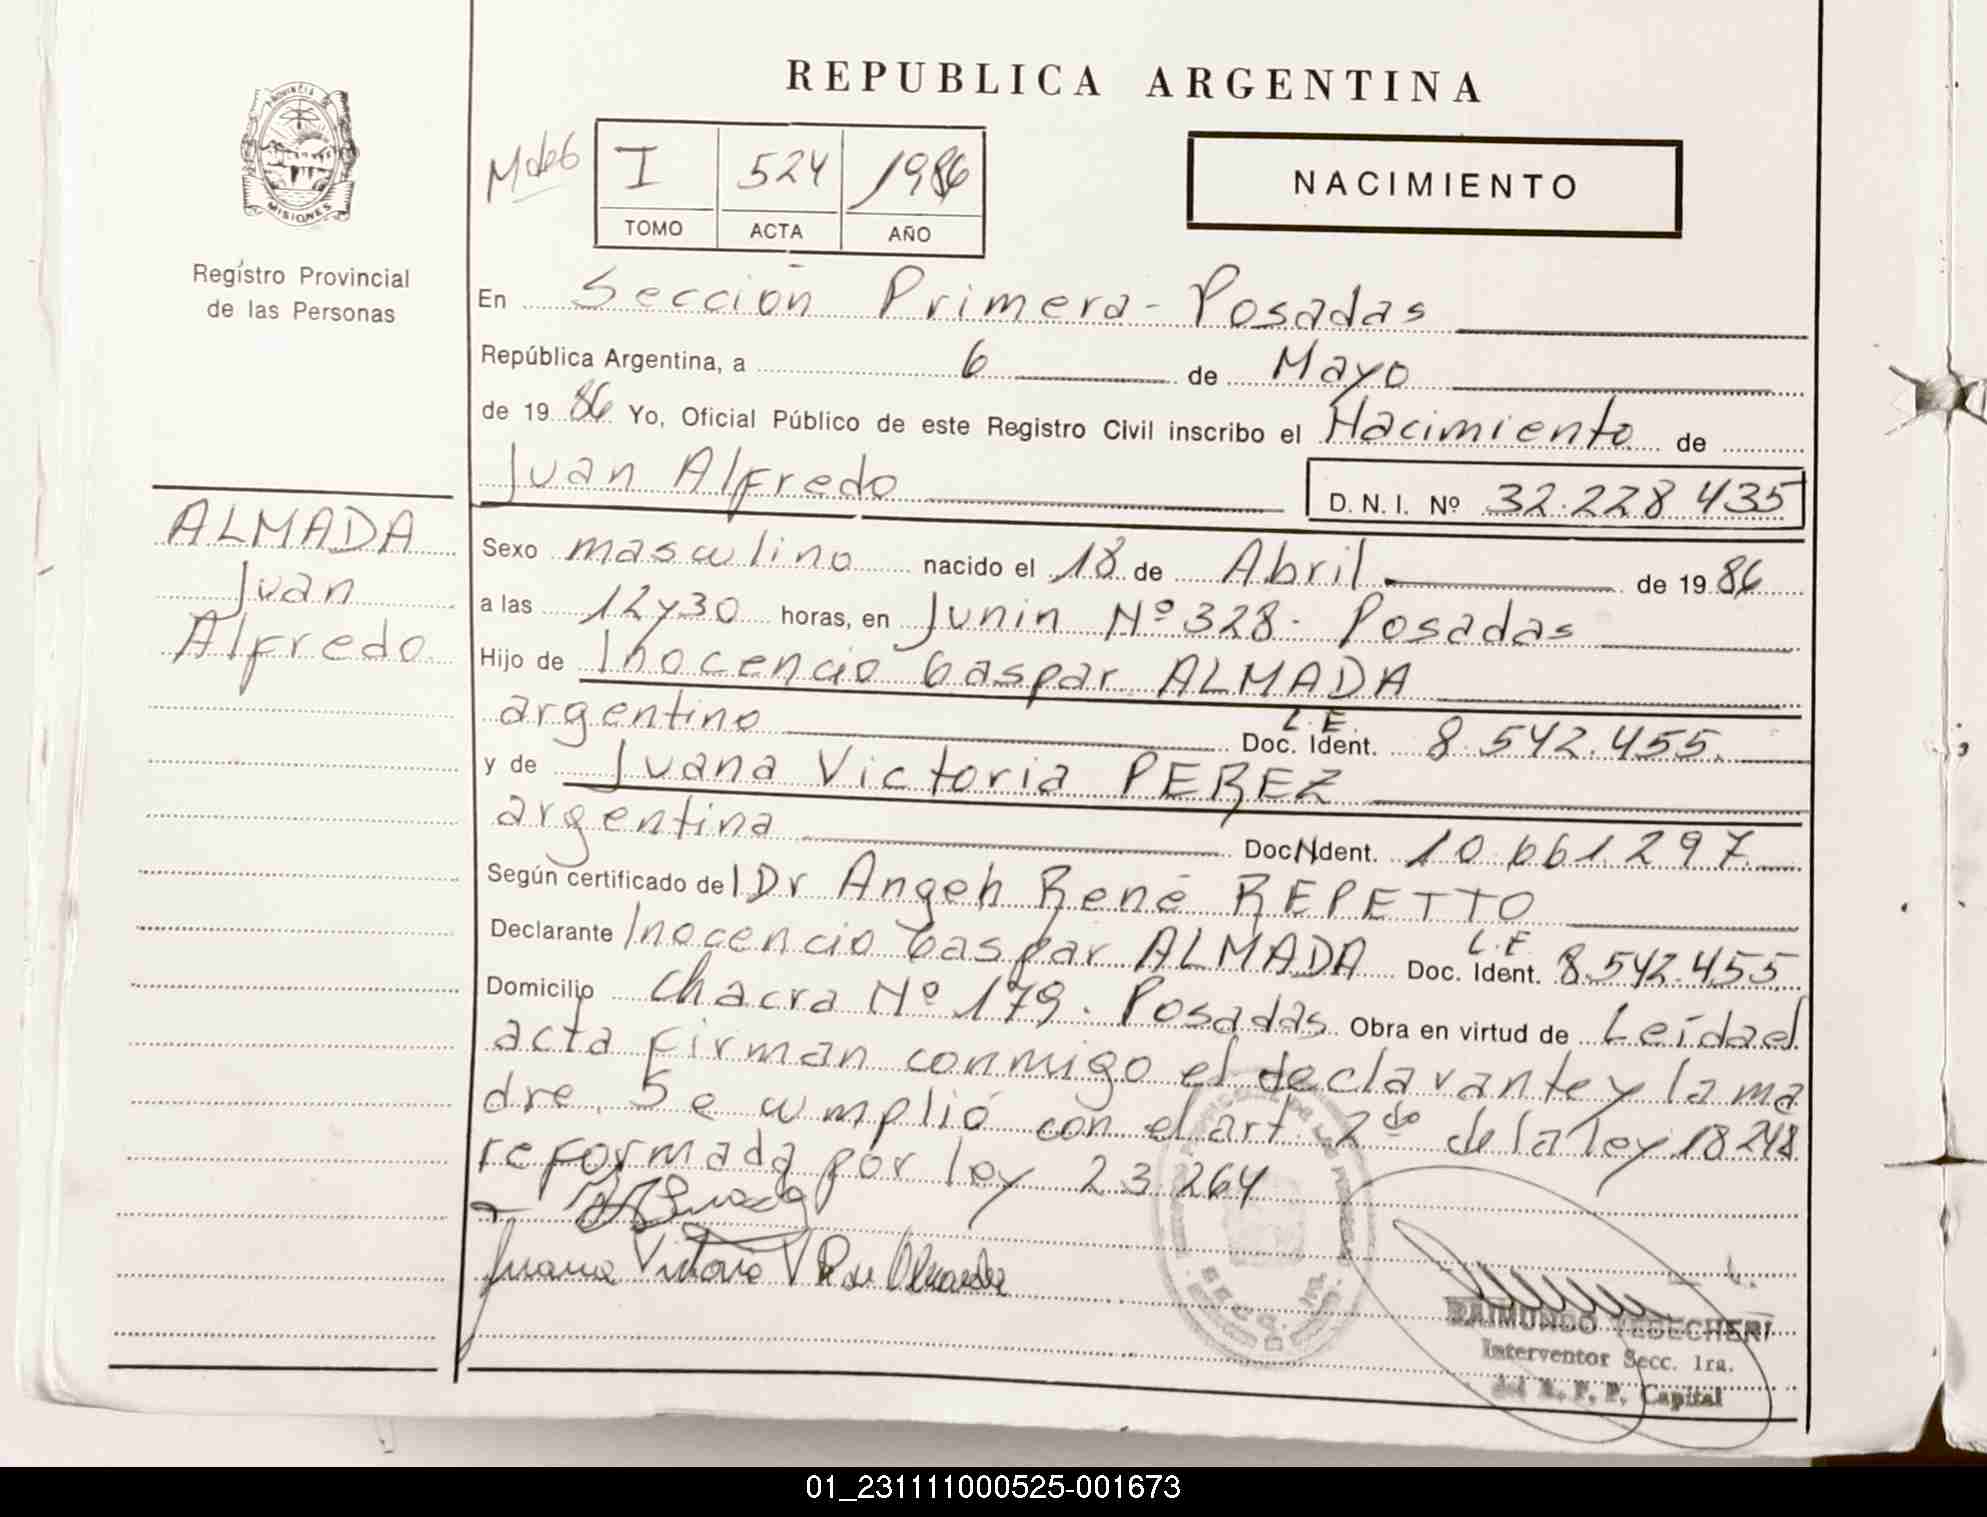 REPUBLICA ARGENTINA
PROVINCIA DE
MISIONES
Registro Provincial
de las Personas
I 524 1986
TOMO ACTA AÑO
NACIMIENTO
En Sección Primera - Posadas
República Argentina, a 6 de Mayo
de 19 86 Yo, Oficial Público de este Registro Civil inscribo el Nacimiento de
Juan Alfredo D. N. I. Nº 32.228.435
ALMADA
Juan
Alfredo
Sexo masculino nacido el 18 de Abril de 19 86
a las 12 y 30 horas, en Junin Nº 328 - Posadas
Hijo de Inocencio Gaspar ALMADA
argentino L.E. Doc. Ident. 8.542.455.
y de Juana Victoria PEREZ
argentina Doc. Ident. 10.661.297
Según certificado de l Dr Angeh René REPETTO
Declarante Inocencio Gaspar ALMADA L.E Doc. Ident. 8.542.455
Domicilio Chacra Nº 179. Posadas Obra en virtud de Leída el
acta firman conmigo el declarante y la ma
dre. Se cumplió con el art. 2do de la ley 18248
reformada por ley 23.264
Juana Victoria
RAIMUNDO TEDECHERI
Interventor Secc. 1ra.
del R. P. P. Capital
01_231111000525-001673